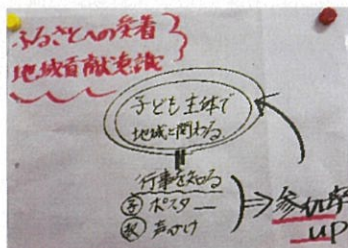 ふるさとへの愛着
地域貢献意識
子ども主体で
地域に関わる
行事を知る
子 ポスター
声かけ
⇒参加率
up